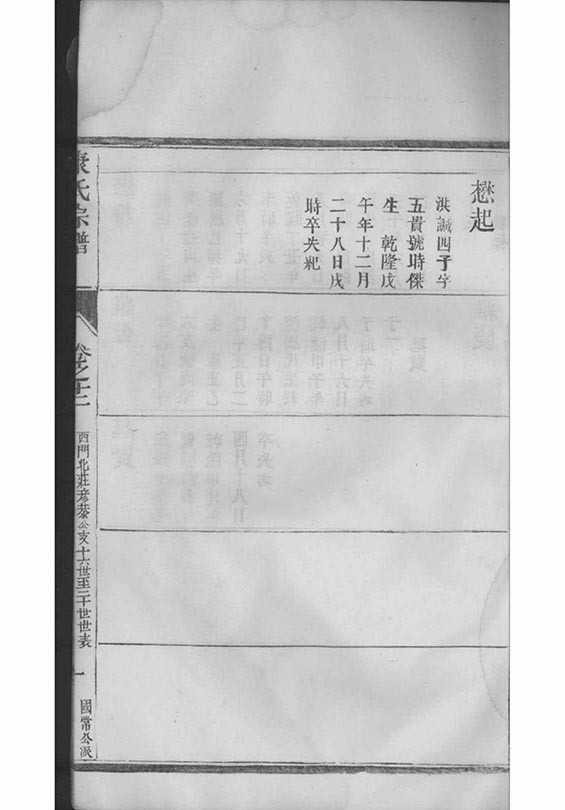 懋起
洪誠四子字
五貴號時傑
生　乾隆戊
午年十二月
二十八日戌
時卒失紀
康氏宗譜
卷之十二
西門北莊彥恭公支十六世至二十世世表
一
國常公派